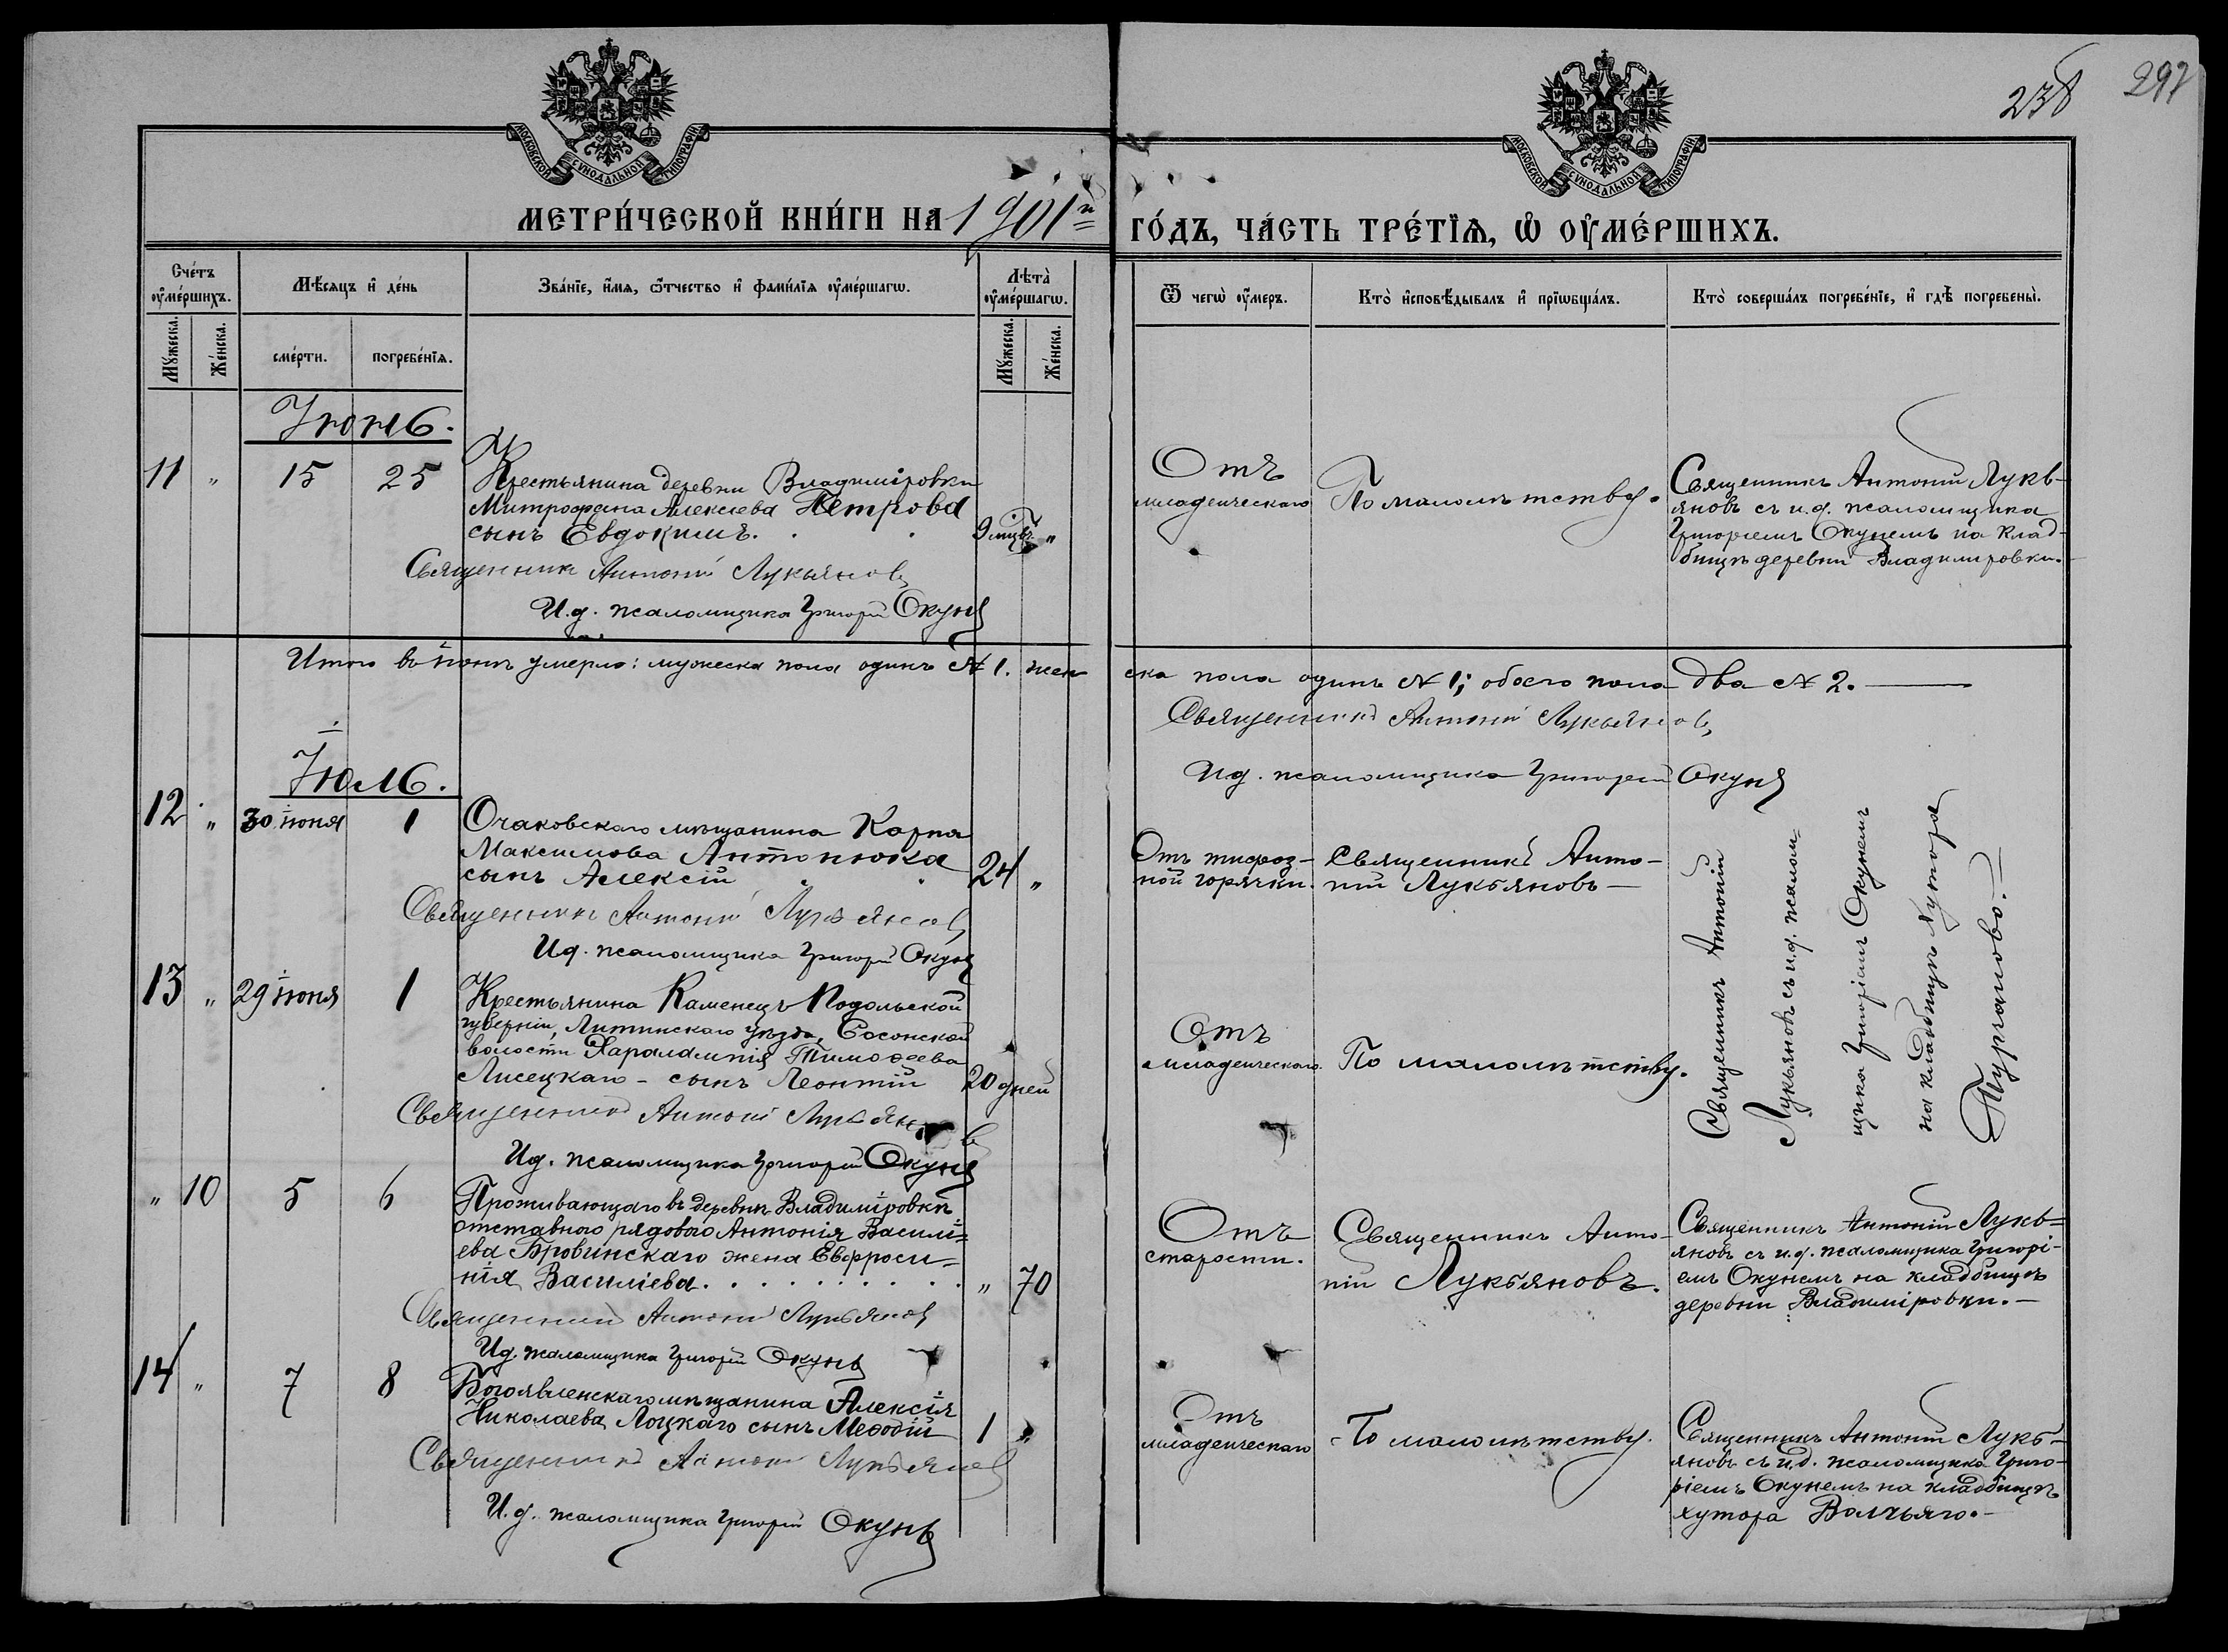 238 297
МОСКОВСКОЙ СУНОДАЛЬНОЙ ТИПОГРАФІИ
МОСКОВСКОЙ СУНОДАЛЬНОЙ ТИПОГРАФІИ
МЕТРИ́ЧЕСКОЙ КНИ́ГИ НА 1901й ГО́ДЪ, ЧА́СТЬ ТРЕ́ТІѦ, Ѡ ОУМЕ́РШИХЪ.
Сче́тъ оуме́ршихъ.
Мꙋ́жеска.
Же́нска.
Мѣ́сяцъ и де́нь
сме́рти.
погребе́нїѧ.
Зва́нїе, и́мѧ, ѻ́тчество и фами́лїѧ оуме́ршагѡ.
Лѣта̀ оуме́ршагѡ.
Мꙋ́жеска.
Же́нска.
Ѿ чегѡ̀ оу́меръ.
Кто̀ исповѣ́дывалъ и прїѡбща́лъ.
Кто̀ соверша́лъ погребе́нїе, и гдѣ̀ погребены̀.
Іюнь.
11 " 15 25
Крестьянина деревни Владиміровки
Митрофана Алексѣева Петрова
сынъ Евдокимъ. . . 9 мцвъ "
Священникъ Антоній Лукьяновъ
И.д. псаломщика Григорій Окунь
Отъ
младенческаго
По малолѣтству.
Священникъ Антоній Лукь-
яновъ съ и.д. псаломщика
Григоріемъ Окунемъ на клад-
бищѣ деревни Владиміровки.
Итого въ іюнѣ умерло: мужеска пола одинъ № 1. жен
ска пола одинъ № 1; обоего пола два № 2.
Священникъ Антоній Лукьяновъ
И.д. псаломщика Григорій Окунь
Іюль.
12 " 30 іюня 1
Очаковскаго мѣщанина Карпа
Максимова Антонюка
сынъ Алексій . . 24 "
Священникъ Антоній Лукьяновъ
И.д. псаломщика Григорій Окунь
Отъ тифоз-
ной горячки.
Священникъ Анто-
ній Лукьяновъ
13 " 29 іюня 1
Крестьянина Каменецъ Подольской
губерніи, Литинскаго уѣзда, Сосонской
волости Харалампія Тимоѳеева
Лисецкаго - сынъ Леонтій 20 дней
Священникъ Антоній Лукьяновъ
И.д. псаломщика Григорій Окунь
Отъ
младенческаго.
По малолѣтству.
Священникъ Антоній
Лукьяновъ съ и.д. псалом-
щика Григоріемъ Окунемъ
на кладбищѣ хутора
" 10 5 6
Проживающаго въ деревнѣ Владиміровкѣ
отставного рядового Антонія Василі-
ева Бровинскаго жена Евфроси-
нія Василіева. . . . . . . . . " 70
Священникъ Антоній Лукьяновъ
И.д. псаломщика Григорій Окунь
Отъ
старости.
Священникъ Анто-
ній Лукьяновъ.
Священникъ Антоній Лукь-
яновъ съ и.д. псаломщика Григорі-
емъ Окунемъ на кладбищѣ
деревни Владиміровки.
14 " 7 8
Богоявленскаго мѣщанина Алексія
Николаева Лоцкаго сынъ Меѳодій 1 "
Священникъ Антоній Лукьяновъ
И.д. псаломщика Григорій Окунь
Отъ
младенческаго
По малолѣтству.
Священникъ Антоній Лукь-
яновъ съ и.д. псаломщика Григо-
ріемъ Окунемъ на кладбищѣ
хутора Волчьяго.